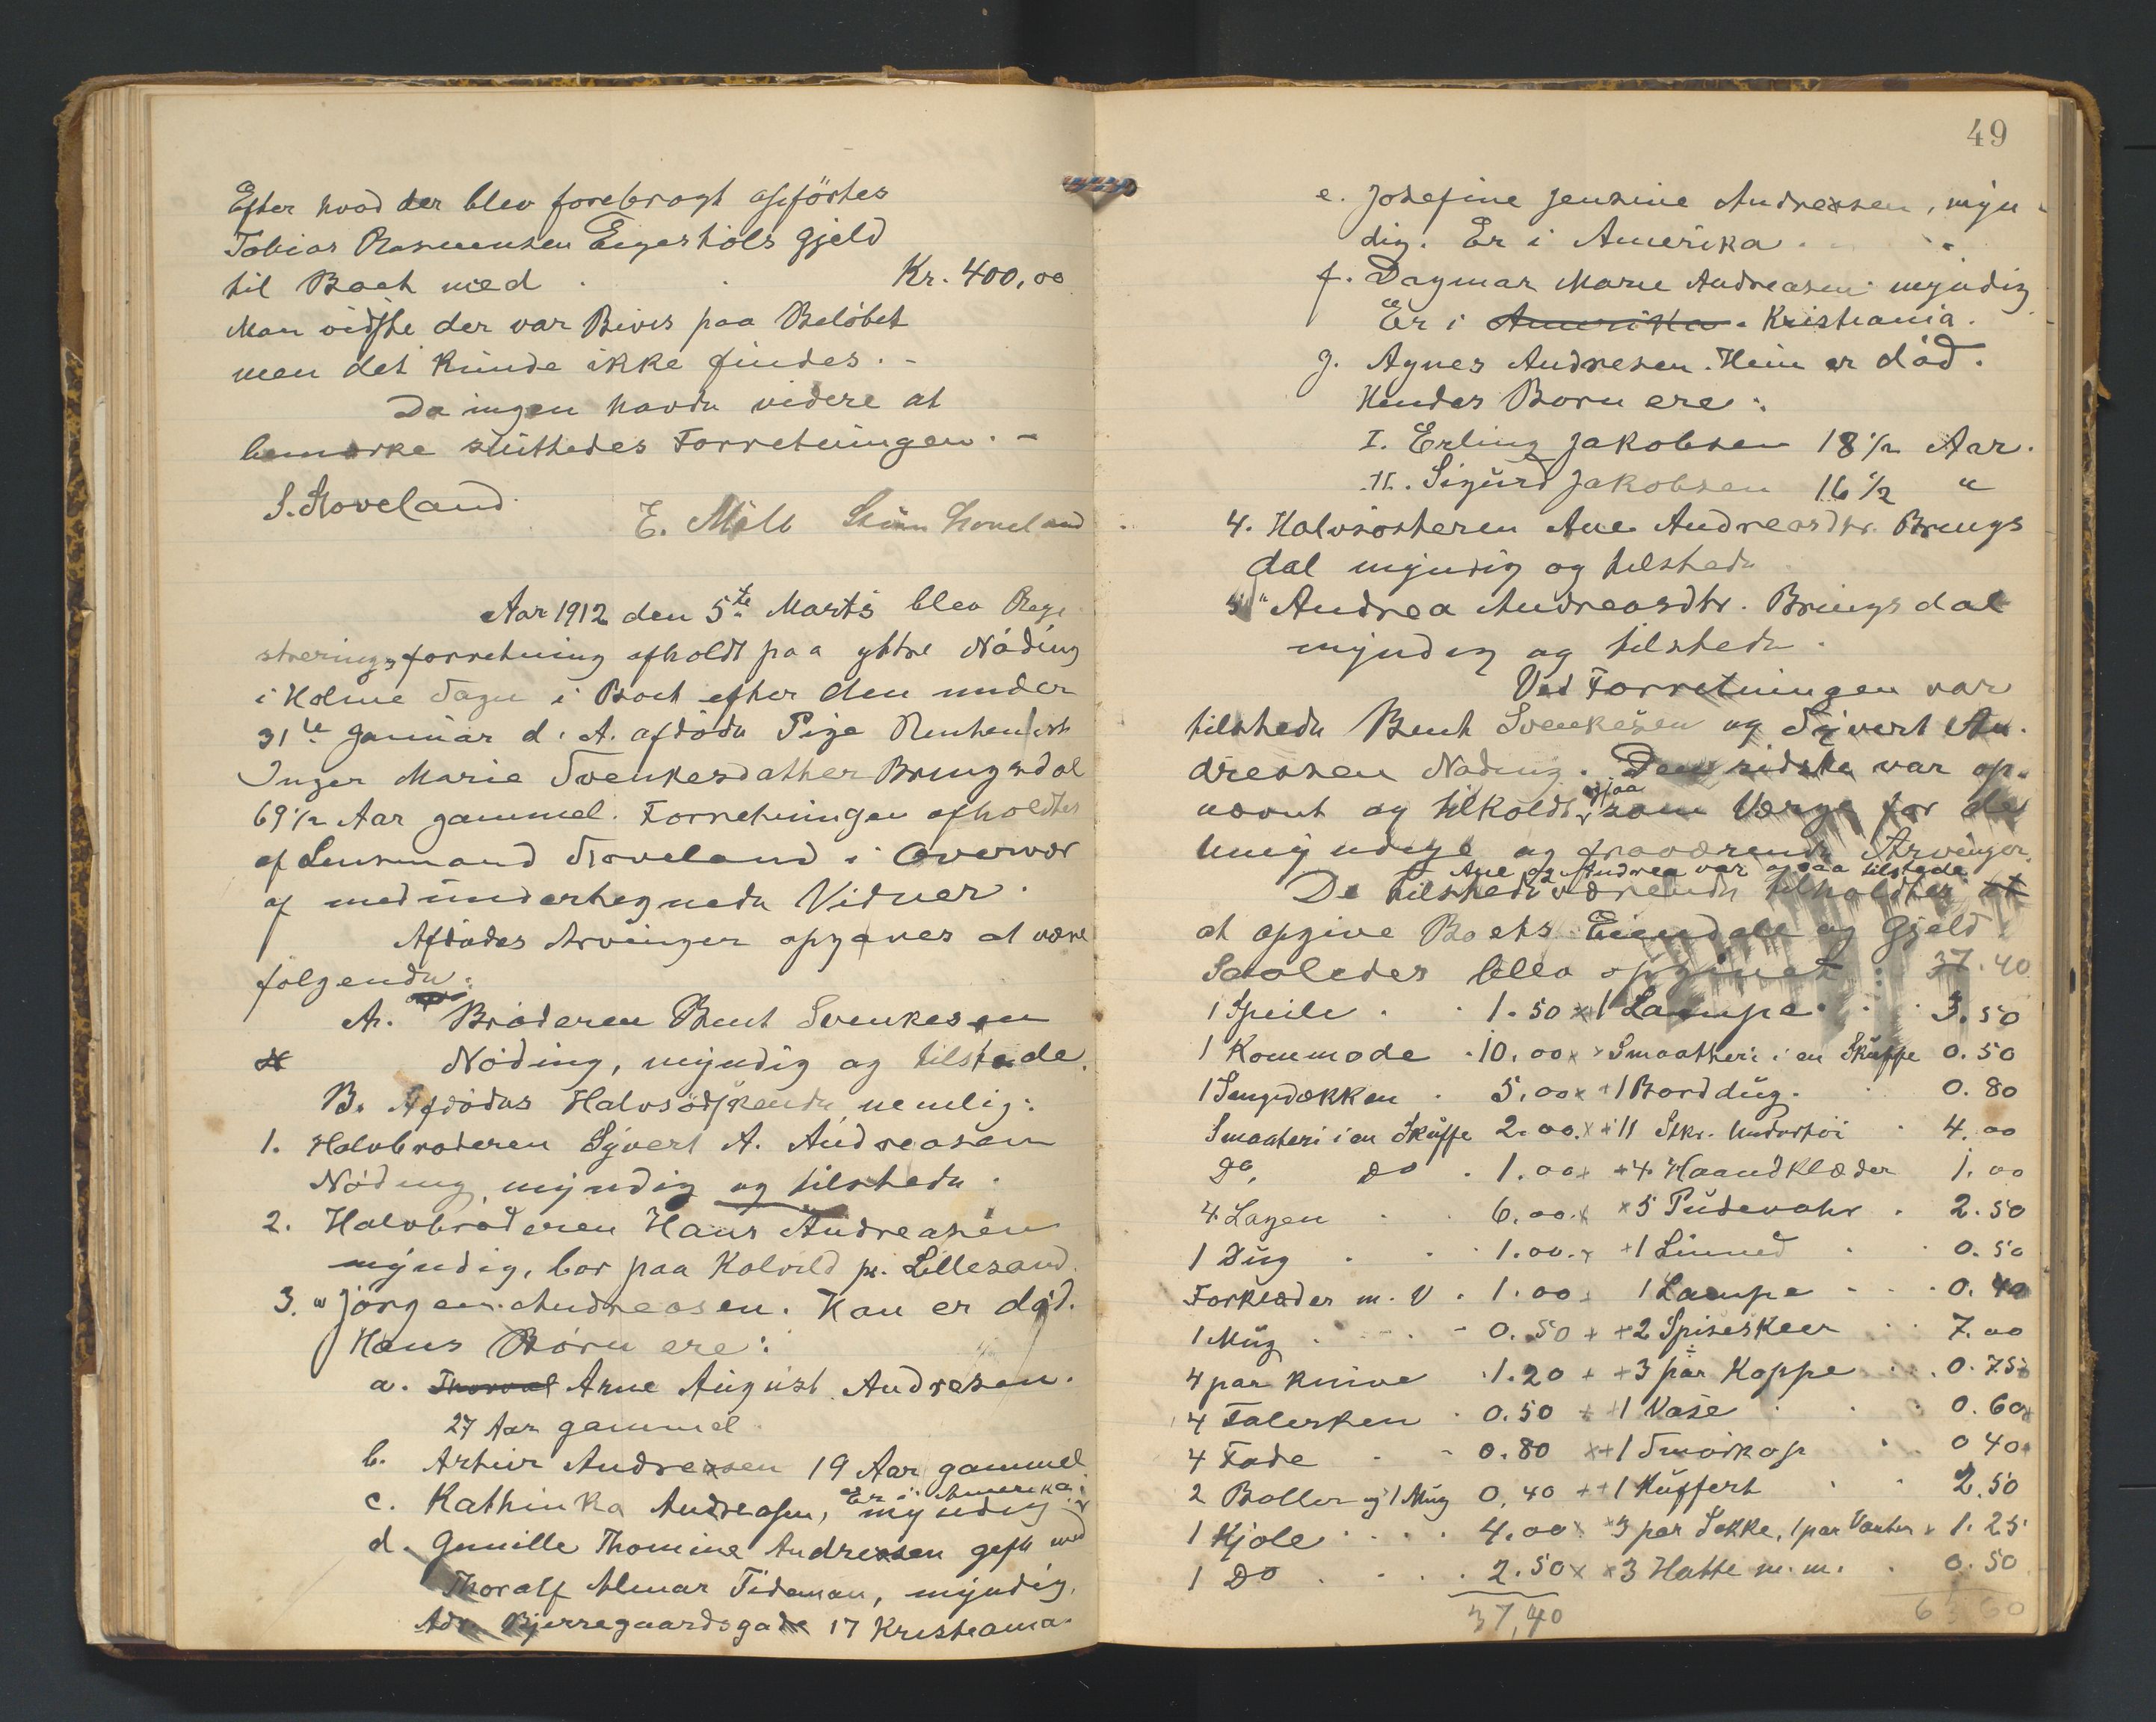 Efter hvad der blev forebragt opførtes
Tobias Rasmussen Eigestøls Gjeld
til Boet med . . Kr. 400,00
Man vidste der var Bevis paa Beløbet
men det kunde ikke findes. -
Da ingen havde videre at
bemærke sluttedes Forretningen. -
S. Stoveland
E. Mall
Aar 1912 den 5te Marts blev Regi
streringsforretning afholdt paa yttre Nøding
i Holme Sogn i Boet efter den under
31te Januar d. A. afdøde Pige
Inger Marie Svenkesdatter Bringsdal
69 1/2 Aar gammel. Forretningen afholdtes
af Lensmand Stoveland i Overvær
af medundertegnede Vidner.
Afdødes Arvinger opgaves at være
følgende:
A. Broderen Bent Svenkesen
Nøding, myndig og tilstede.
B. Afdødes Halvsødskende, nemlig:
1. Halvbroderen Syvert A. Andreasen
Nøding, myndig og tilstede.
2. Halvbroderen Hans Andreasen
myndig, bor paa Kalvild pr. Lillesand.
3. " Jørgen Andreasen. Han er død.
Hans Børn ere:
a. Thorval Arne August Andresen.
27 Aar gammel
b. Arthur Andreasen 19 Aar gammel
Er i Amerika
c. Kathinka Andreasen, myndig
d. Gunille Thomine Andreasen gift med
Thoralf Almar Tideman, myndig,
Adr. Bjerregaardsgade 17 Kristiania
49
e. Josefine Jensine Andreasen, myn-
dig. Er i Amerika.
f. Dagmar Marie Andreasen myndig
Er i Amerika. Kristiania.
g. Agnes Andresen. Hun er død.
Hendes Børn ere:
I. Erling Jakobsen 18 1/2 Aar.
II. Sigurd Jakobsen 16 1/2 "
4. Halvsøsteren Ane Andreasdtr. Brings
dal myndig og tilstede
5 " Andrea Andreasdtr. Bringsdal
myndig og tilstede.
Ved Forretningen var
tilstede Bent Svenkesen og Syvert An.
dreasen Nøding. Den sidste var op.
ogsaa
nævnt og tilkaldt som Værge for de
umyndige og fraværende Arvinger.
Ane og Andrea var ogsaa tilstede
De tilstedeværende tilholdtes at
at opgive Boets Eiendele og Gjeld.
Saaledes blev opgivet: 37.40
1 Speile . . 1.50 x 1 Lampe . . 3.50
1 Kommode . 10.00 x x Smaatteri i en Skuffe 0.50
1 Sengdækken . 5.00 x + 1 Borddug . . 0.80
Smaateri i en Skuffe 2.00 x + 11 Stkr. Undertøi . 4.00
Do, Do . 1.00 x + 4 Haandklæder 1.00
4 Lagen . . 6.00 x x 5 Pudevahr . 2.50
1 Dug . . . 1.00 x + 1 Linned . . 0.50
Forklæder m. V . 1.00 x 1 Lampe . . . 0.40
1 Mug . . . . 0.50 + + 2 Spiseskeer . . 7.00
4 par Knive . 1.20 + + 3 par Koppe . . . 0.75
4 Talerken . 0.50 + + 1 Vase . . . 0.60
4 Fade . . 0.80 x + 1 Smørkop . 0 40
2 Boller og 1 Mug 0,40 + + 1 Kuffert . . 2.50
1 Kjole . . . . 4.00 x x 3 par Sokke, 1 par Vanter x 1.25
1 Do . . . . 2.50 x x 3 Hatte m. m. . 0.50
37,40